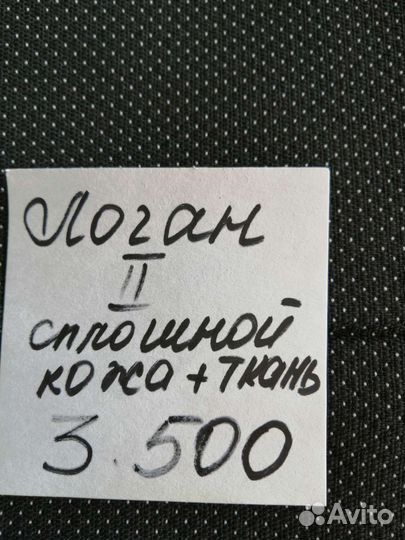 Логан
II
сплошной
кожа + ткань
3.500
Avito